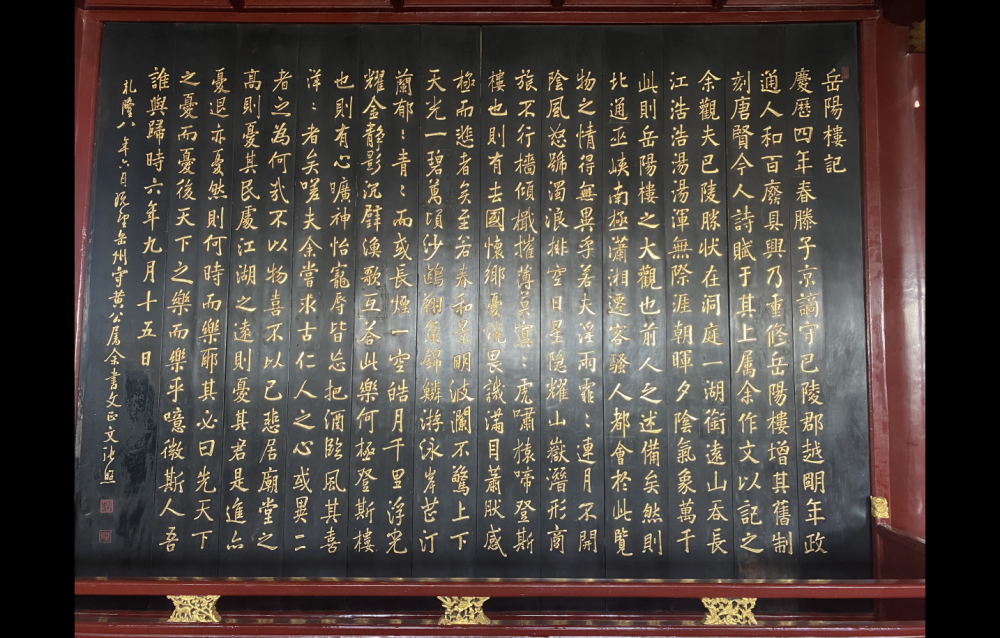 岳陽樓記
慶歷四年春滕子京謫守巴陵郡越明年政
通人和百廢具興乃重修岳陽樓增其舊制
刻唐賢今人詩賦于其上属余作文以記之
余觀夫巴陵勝狀在洞庭一湖銜遠山吞長
江浩浩湯湯渾無際涯朝暉夕陰氣象萬千
此則岳陽樓之大觀也前人之述備矣然則
北通巫峽南極瀟湘遷客騷人都會於此覽
物之情得無異乎若夫淫雨霏〻連月不開
陰風怒號濁浪排空日星隱耀山嶽潛形商
旅不行檣傾檝摧薄莫冥〻虎嘯猿啼登斯
樓也則有去國懷鄉憂讒畏譏滿目蕭然感
極而悲者矣至若春和景明波瀾不驚上下
天光一碧萬頃沙鷗翔集錦鱗游泳岸芷汀
蘭郁〻青〻而或長煙一空皓月千里浮光
耀金靜影沉璧漁歌互答此樂何極登斯樓
也則有心曠神怡寵辱皆忘把酒臨風其喜
洋〻者矣嗟夫余嘗求古仁人之心或異二
者之為何哉不以物喜不以己悲居廟堂之
高則憂其民處江湖之遠則憂其君是進亦
憂退亦憂然則何時而樂耶其必曰先天下
之憂而憂後天下之樂而樂乎噫微斯人吾
誰與歸時六年九月十五日
乾隆八年六月既望岳州守黄公属余書文正文張照